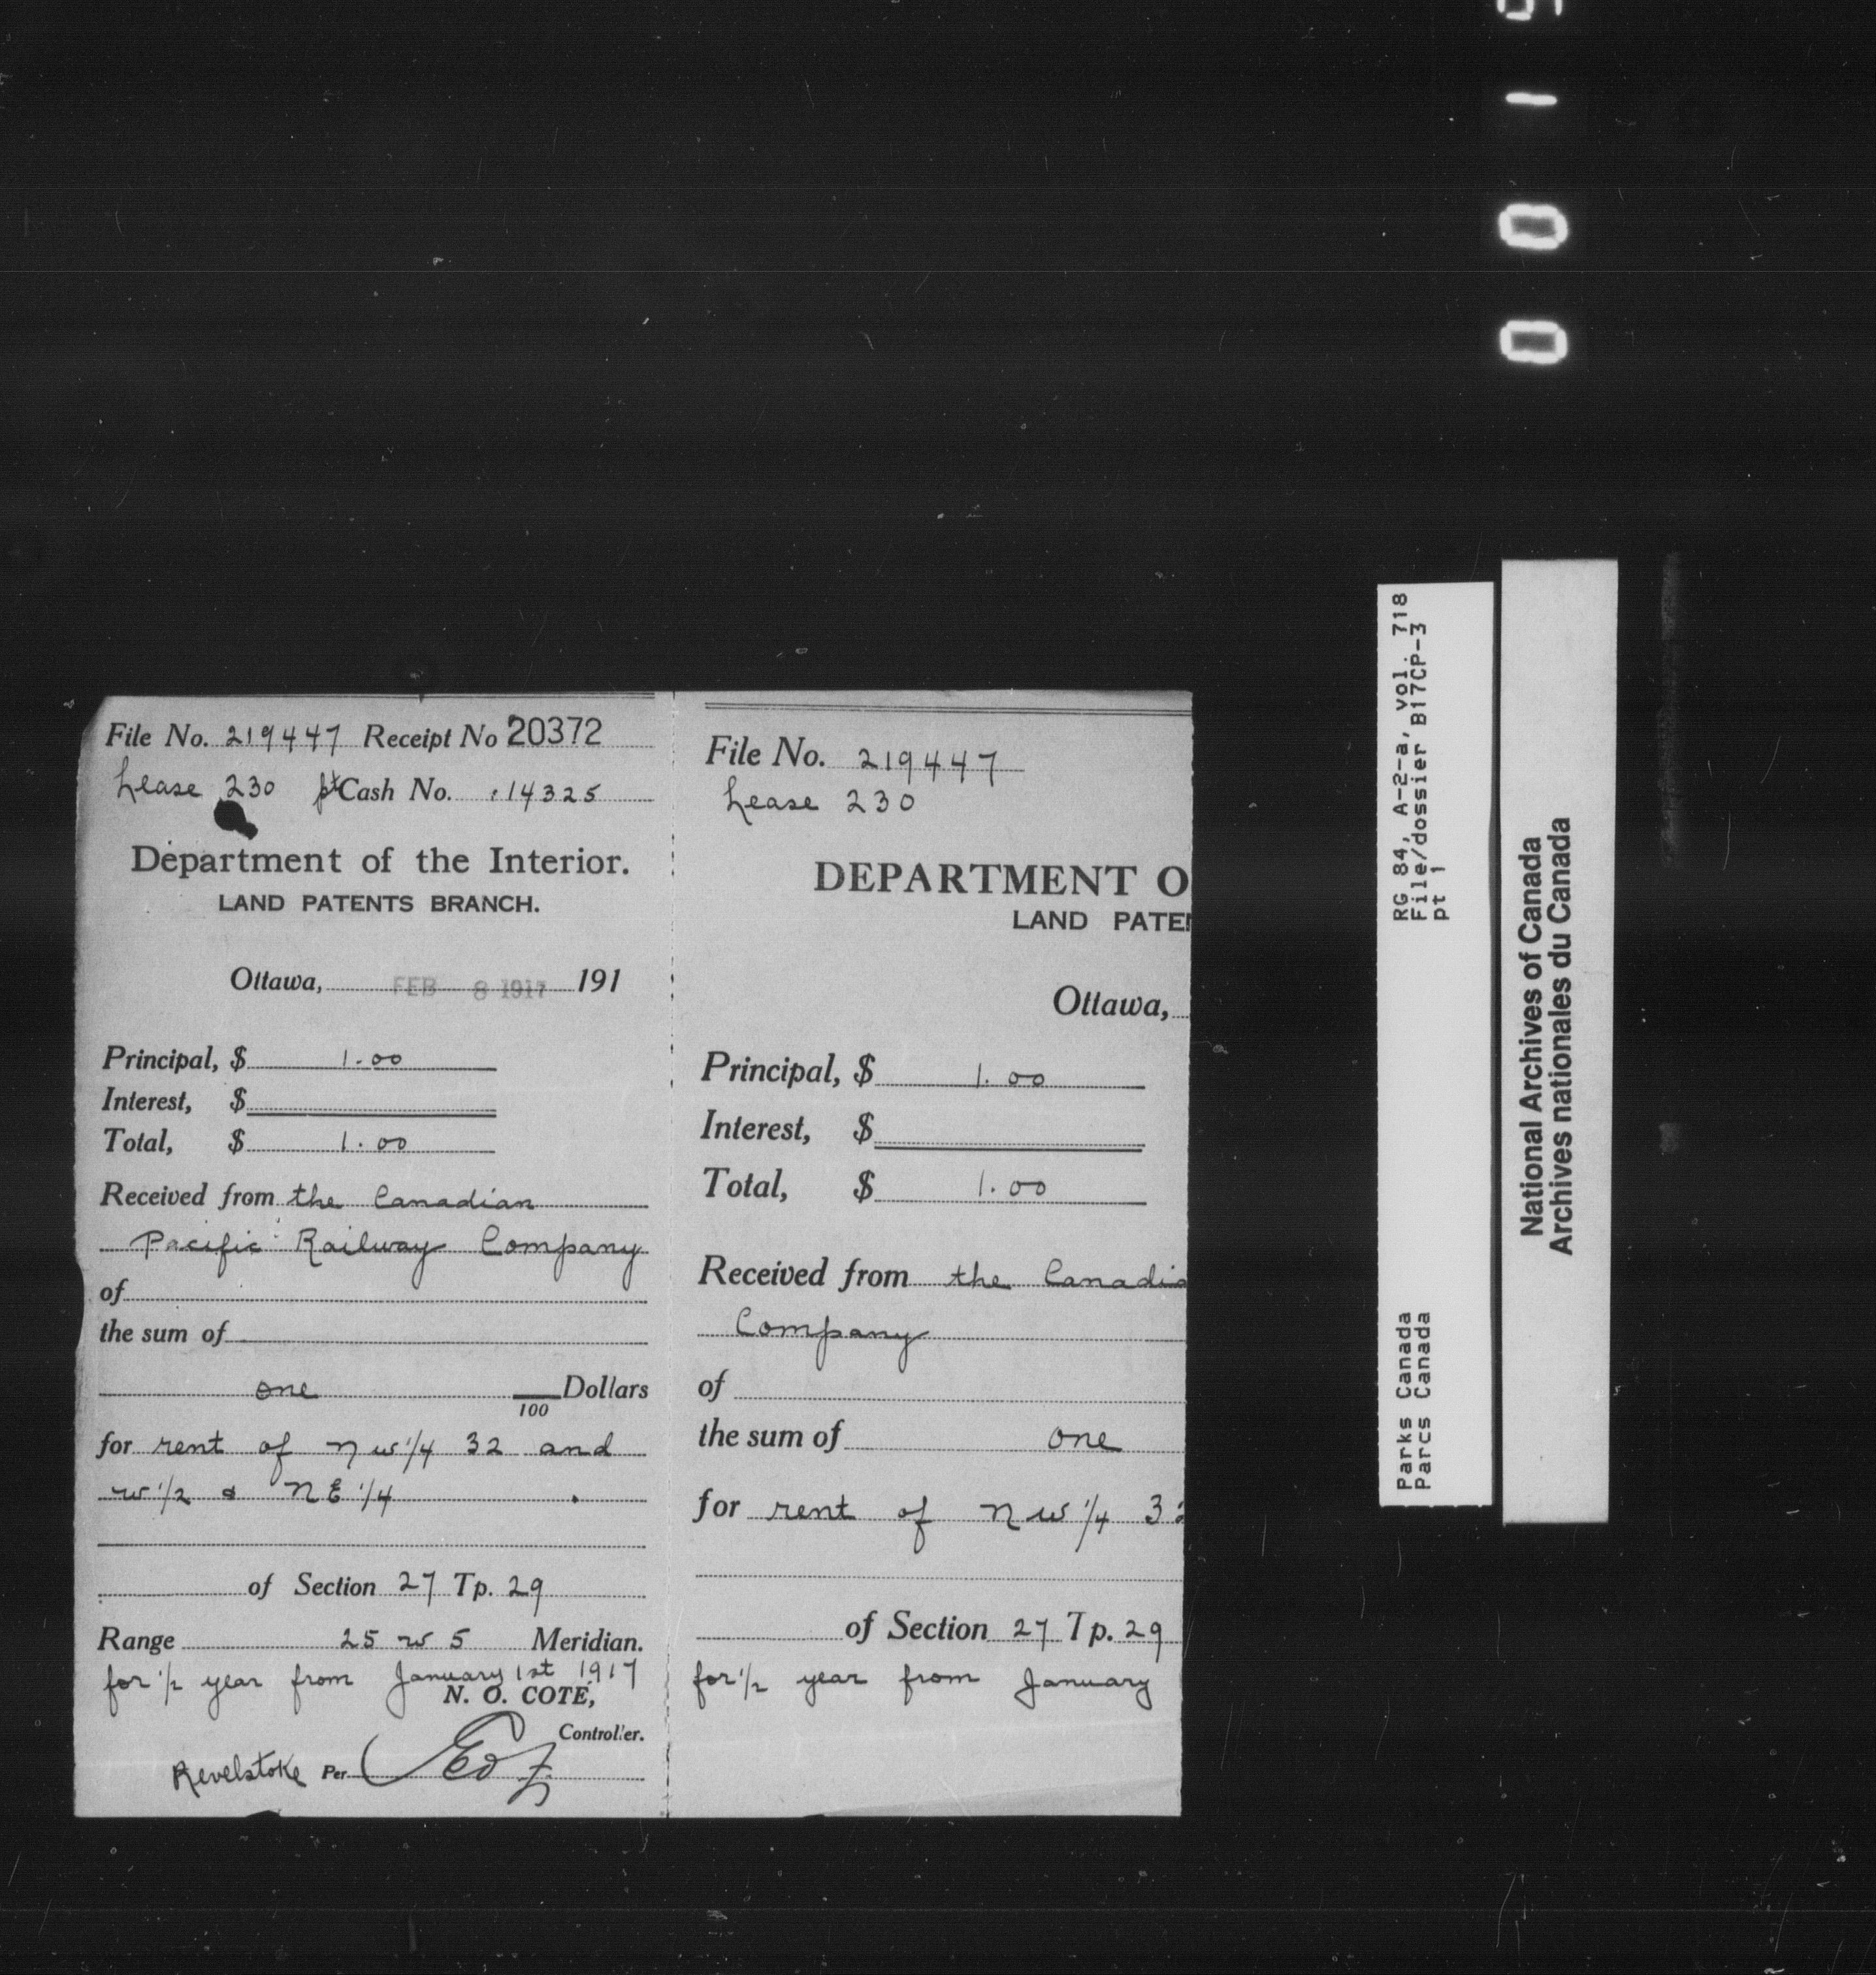 File No. 219447 Receipt No 20372
Lease 230 pt Cash No. 14325
Department of the Interior.
LAND PATENTS BRANCH.
Ottawa, FEB 8 1917 191
Principal, $ 1.00
Interest, $
Total, $ 1.00
Received from the Canadian
Pacific Railway Company
of
the sum of
one /100 Dollars
for rent of NW 1/4 32 and
W 1/2 & NE 1/4
of Section 27 Tp. 29
Range 25 W 5 Meridian.
for 1/2 year from January 1st 1917
N. O. COTE,
Controller.
Revelstoke Per
File No. 219447
Lease 230
DEPARTMENT O
LAND PATEN
Ottawa,
Principal, $ 1.00
Interest, $
Total, $ 1.00
Received from the Canadia
Company
of
the sum of one
for rent of NW 1/4 32
of Section 27 Tp. 29
for 1/2 year from January
RG 84, A-2-a, vol. 718
File/dossier B17CP-3
pt 1
Parks Canada
Parcs Canada
National Archives of Canada
Archives nationales du Canada